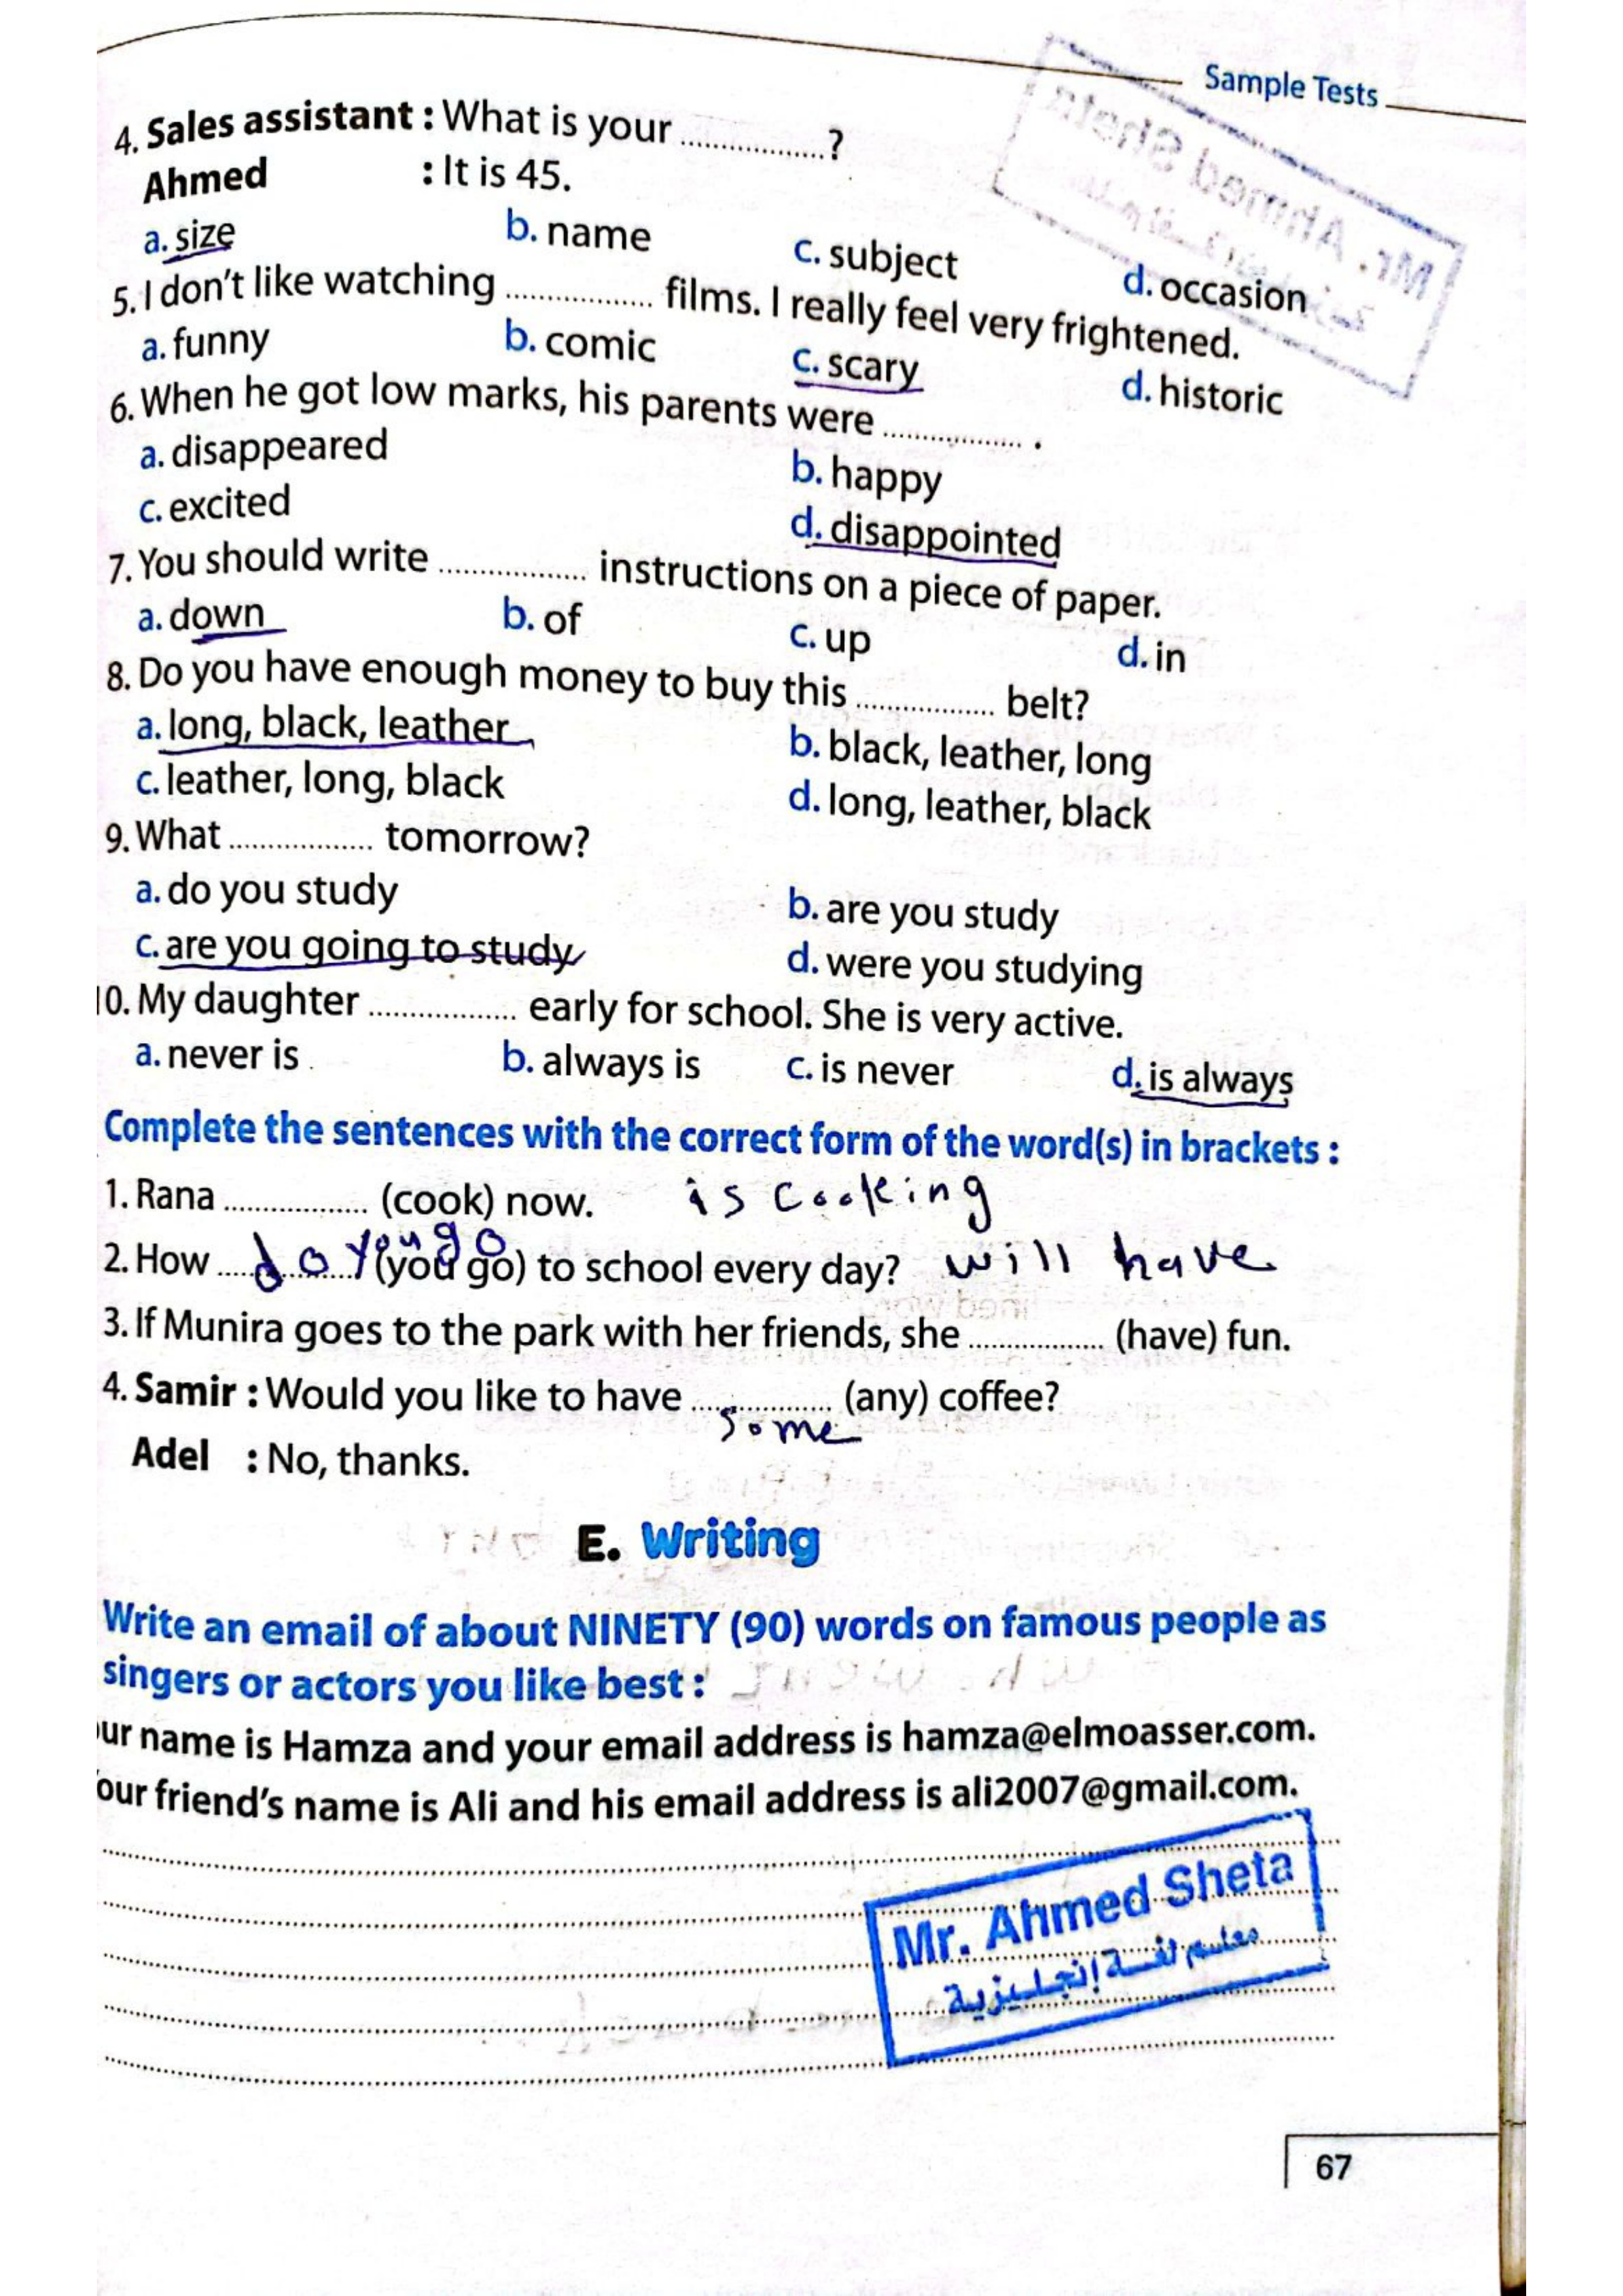 Sample Tests
4. Sales assistant : What is your .................?
Ahmed : It is 45.
a. size b. name c. subject d. occasion
5. I don't like watching ................. films. I really feel very frightened.
a. funny b. comic c. scary d. historic
6. When he got low marks, his parents were ................. .
a. disappeared b. happy
c. excited d. disappointed
7. You should write ................. instructions on a piece of paper.
a. down b. of c. up d. in
8. Do you have enough money to buy this ................. belt?
a. long, black, leather b. black, leather, long
c. leather, long, black d. long, leather, black
9. What ................. tomorrow?
a. do you study b. are you study
c. are you going to study d. were you studying
10. My daughter ................. early for school. She is very active.
a. never is b. always is c. is never d. is always
Complete the sentences with the correct form of the word(s) in brackets :
1. Rana ................. (cook) now. is cooking
2. How do you go (you go) to school every day? will have
3. If Munira goes to the park with her friends, she ................. (have) fun.
4. Samir : Would you like to have ................. (any) coffee?
some
Adel : No, thanks.
E. Writing
Write an email of about NINETY (90) words on famous people as
singers or actors you like best :
ur name is Hamza and your email address is hamza@elmoasser.com.
our friend's name is Ali and his email address is ali2007@gmail.com.
Mr. Ahmed Sheta
معلم لغة إنجليزية
67